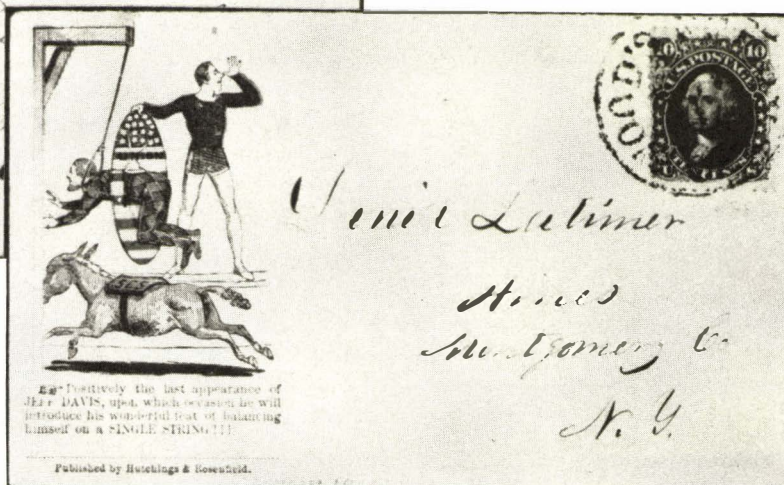 10 10
U.S. POSTAGE
Latimer
Montgomery Co
N. Y.
Positively the last appearance of
JEFF DAVIS, upon which occasion he will
introduce his wonderful feat of balancing
himself on a SINGLE STRING!!!
Published by Hutchings & Rosenfield.